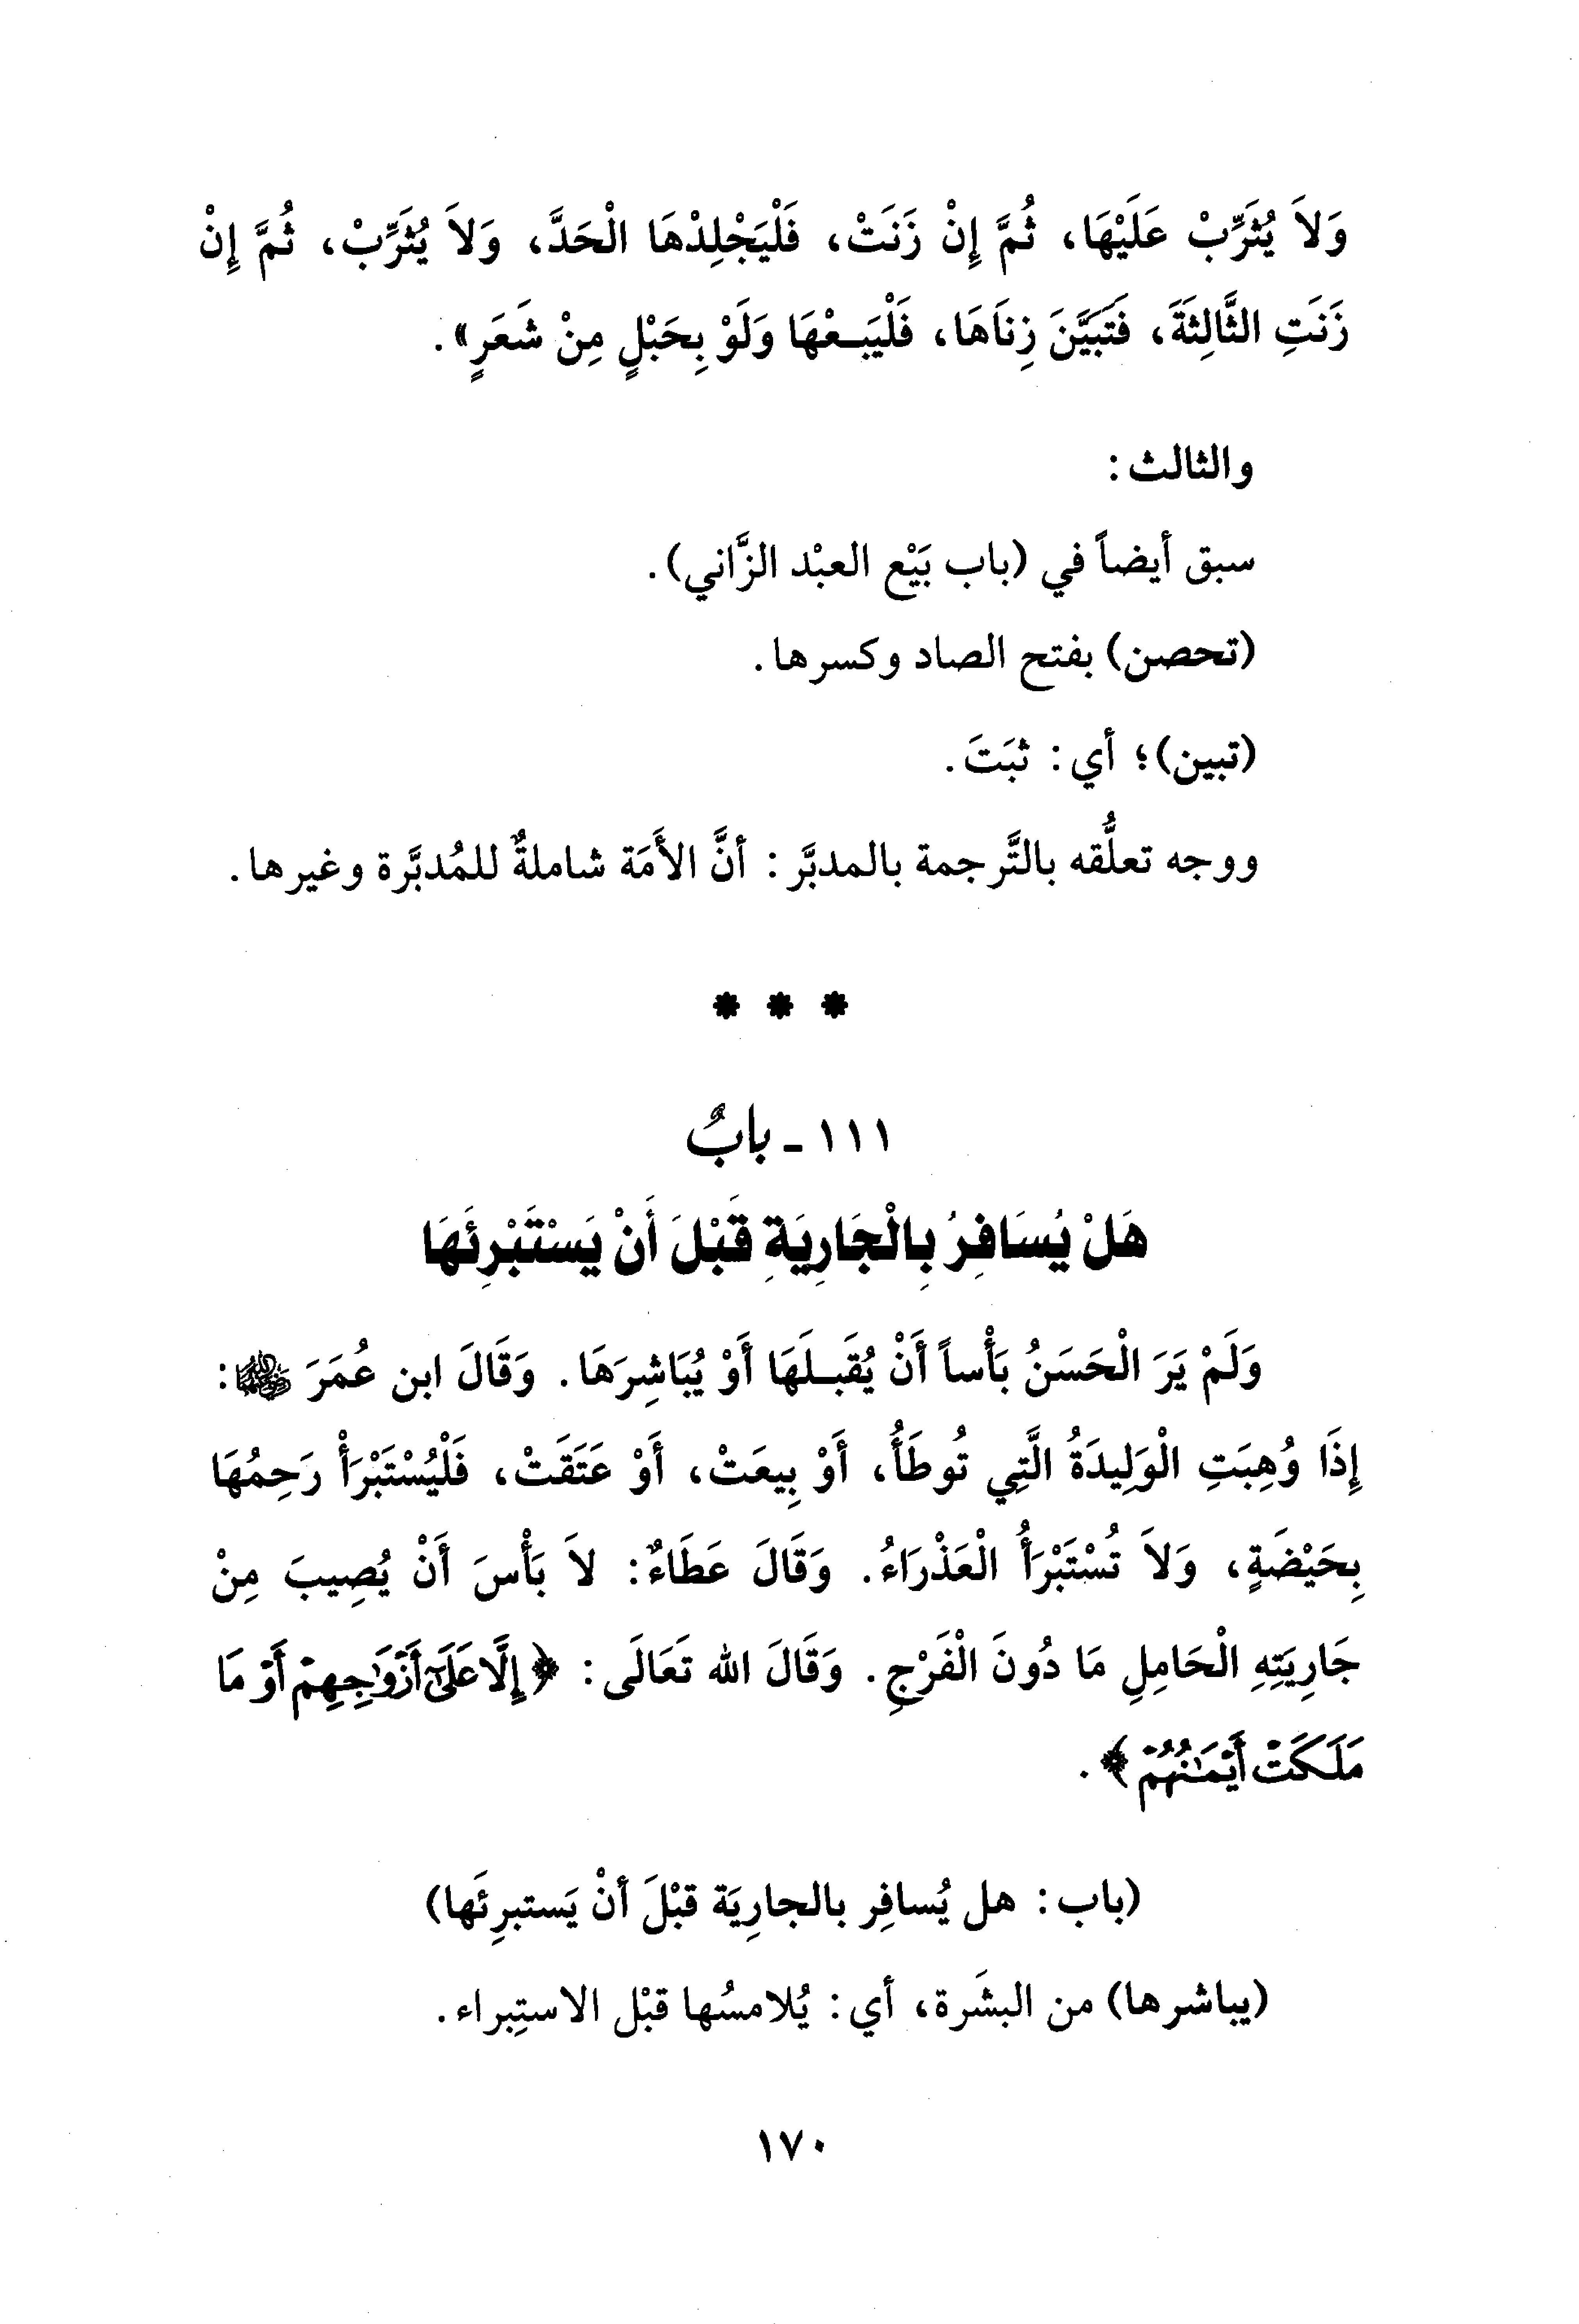 وَلاَ يُثَرِّبْ عَلَيْهَا، ثُمَّ إِنْ زَنَتْ، فَلْيَجْلِدْهَا الْحَدَّ، وَلاَ يُثَرِّبْ، ثُمَّ إِنْ
زَنَتِ الثَّالِثَةَ، فَتَبَيَّنَ زِنَاهَا، فَلْيَبِعْهَا وَلَوْ بِحَبْلٍ مِنْ شَعَرٍ».
والثالث:
سبق أيضاً في (باب بَيْع العبْد الزَّاني).
(تحصن) بفتح الصاد وكسرها.
(تبين)؛ أي: ثبَتَ.
ووجه تعلُّقه بالتَّرجمة بالمدبَّر: أنَّ الأَمَة شاملةٌ للمُدبَّرة وغيرها.
* * *
١١١ - بابٌ
هَلْ يُسَافِرُ بِالْجَارِيَةِ قَبْلَ أَنْ يَسْتَبْرِئَهَا
وَلَمْ يَرَ الْحَسَنُ بَأْساً أَنْ يُقَبلَهَا أَوْ يُبَاشِرَهَا. وَقَالَ ابن عُمَرَ ﵄:
إِذَا وُهِبَتِ الْوَلِيدَةُ الَّتِي تُوطَأُ، أَوْ بِيعَتْ، أَوْ عَتَقَتْ، فَلْيُسْتَبْرَأْ رَحِمُهَا
بِحَيْضَةٍ، وَلاَ تُسْتَبْرَأُ الْعَذْرَاءُ. وَقَالَ عَطَاءٌ: لاَ بَأْسَ أَنْ يُصِيبَ مِنْ
جَارِيَتِهِ الْحَامِلِ مَا دُونَ الْفَرْجِ. وَقَالَ الله تَعَالَى: ﴿إِلَّا عَلَىٰٓ أَزْوَٰجِهِمْ أَوْ مَا
مَلَكَتْ أَيْمَٰنُهُمْ﴾.
(باب: هل يُسافِر بالجارِيَة قبْلَ أنْ يَستبرِئَها)
(يباشرها) من البشَرة، أي: يُلامسُها قبْل الاستِبراء.
١٧٠